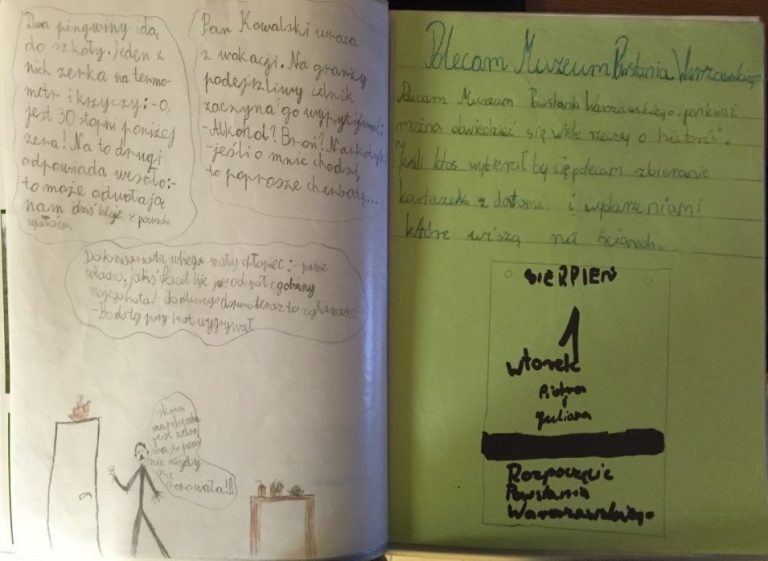 Dwa pingwiny idą
do szkoły. Jeden z
nich zerka na termo-
metr i krzyczy: - O,
jest 30 stopni poniżej
zera! Na to drugi
odpowiada wesoło: -
to może odwołają
nam dziś lekcje z powodu
upałów.
Pan Kowalski wraca
z wakacji. Na granicy
podejrzliwy celnik
zaczyna go wypytywać:
- Alkohol? Broń? Narkotyki?
- jeśli o mnie chodzi,
to poproszę cherbatę...
Do komisariatu wbiega mały chłopiec: - panie
władzo, jakiś facet bije już od pół godziny
mojego tata! dlaczego dopiero teraz to zgłaszasz!
- Bo do tej pory tata wygrywał
skoro
marchewka
jest zdro
wa
nie nigdy
chorowała!!!
Polecam Muzeum Powstania Warszawskiego
Polecam Muzeum Powstania Warszawskiego, ponieważ
można dowiedzieć się wiele rzeczy o historii.
Jeśli ktoś wybierał by się polecam zbieranie
karteczek z datami i wydarzeniami
które wiszą na ścianach.
SIERPIEŃ
1
wtorek
Piotra
i
Juliana
Rozpoczęcie
Powstania
Warszawskiego